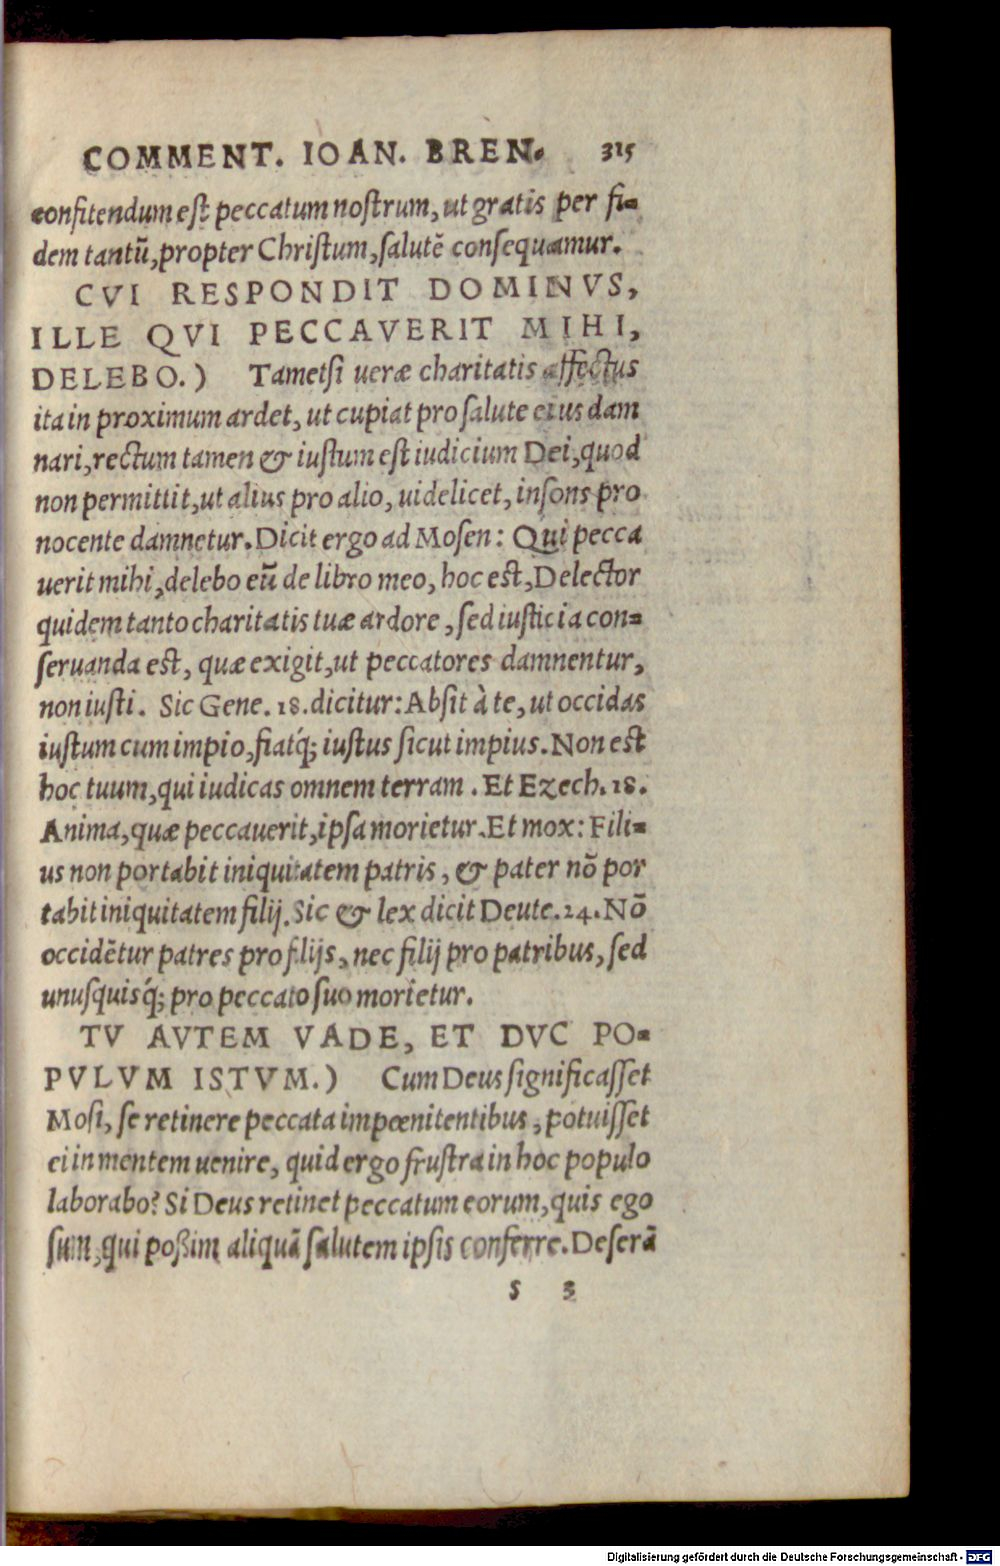 COMMENT. IOAN. BREN. 315
confitendum est peccatum nostrum, ut gratis per fi-
dem tantũ, propter Christum, salutẽ consequamur.
CVI RESPONDIT DOMINVS,
ILLE QVI PECCAVERIT MIHI,
DELEBO.) Tametsi ueræ charitatis affectus
ita in proximum ardet, ut cupiat pro salute eius dam
nari, rectum tamen & iustum est iudicium Dei, quod
non permittit, ut alius pro alio, uidelicet, insons pro
nocente damnetur. Dicit ergo ad Mosen: Qui pecca
uerit mihi, delebo eũ de libro meo, hoc est, Delector
quidem tanto charitatis tuæ ardore, sed iusticia con-
seruanda est, quæ exigit, ut peccatores damnentur,
non iusti. Sic Gene. 18. dicitur: Absit à te, ut occidas
iustum cum impio, fiatq́; iustus sicut impius. Non est
hoc tuum, qui iudicas omnem terram. Et Ezech. 18.
Anima, quæ peccauerit, ipsa morietur. Et mox: Fili-
us non portabit iniquitatem patris, & pater nõ por
tabit iniquitatem filij. Sic & lex dicit Deute. 24. Nõ
occidẽtur patres pro filijs, nec filij pro patribus, sed
unusquisq́; pro peccato suo morietur.
TV AVTEM VADE, ET DVC PO-
PVLVM ISTVM.) Cum Deus significasset
Mosi, se retinere peccata impœnitentibus, potuisset
ei in mentem uenire, quid ergo frustra in hoc populo
laborabo? Si Deus retinet peccatum eorum, quis ego
sum, qui poßim aliquã salutem ipsis conferre. Deserã
s 3
Digitalisierung gefördert durch die Deutsche Forschungsgemeinschaft - DFG